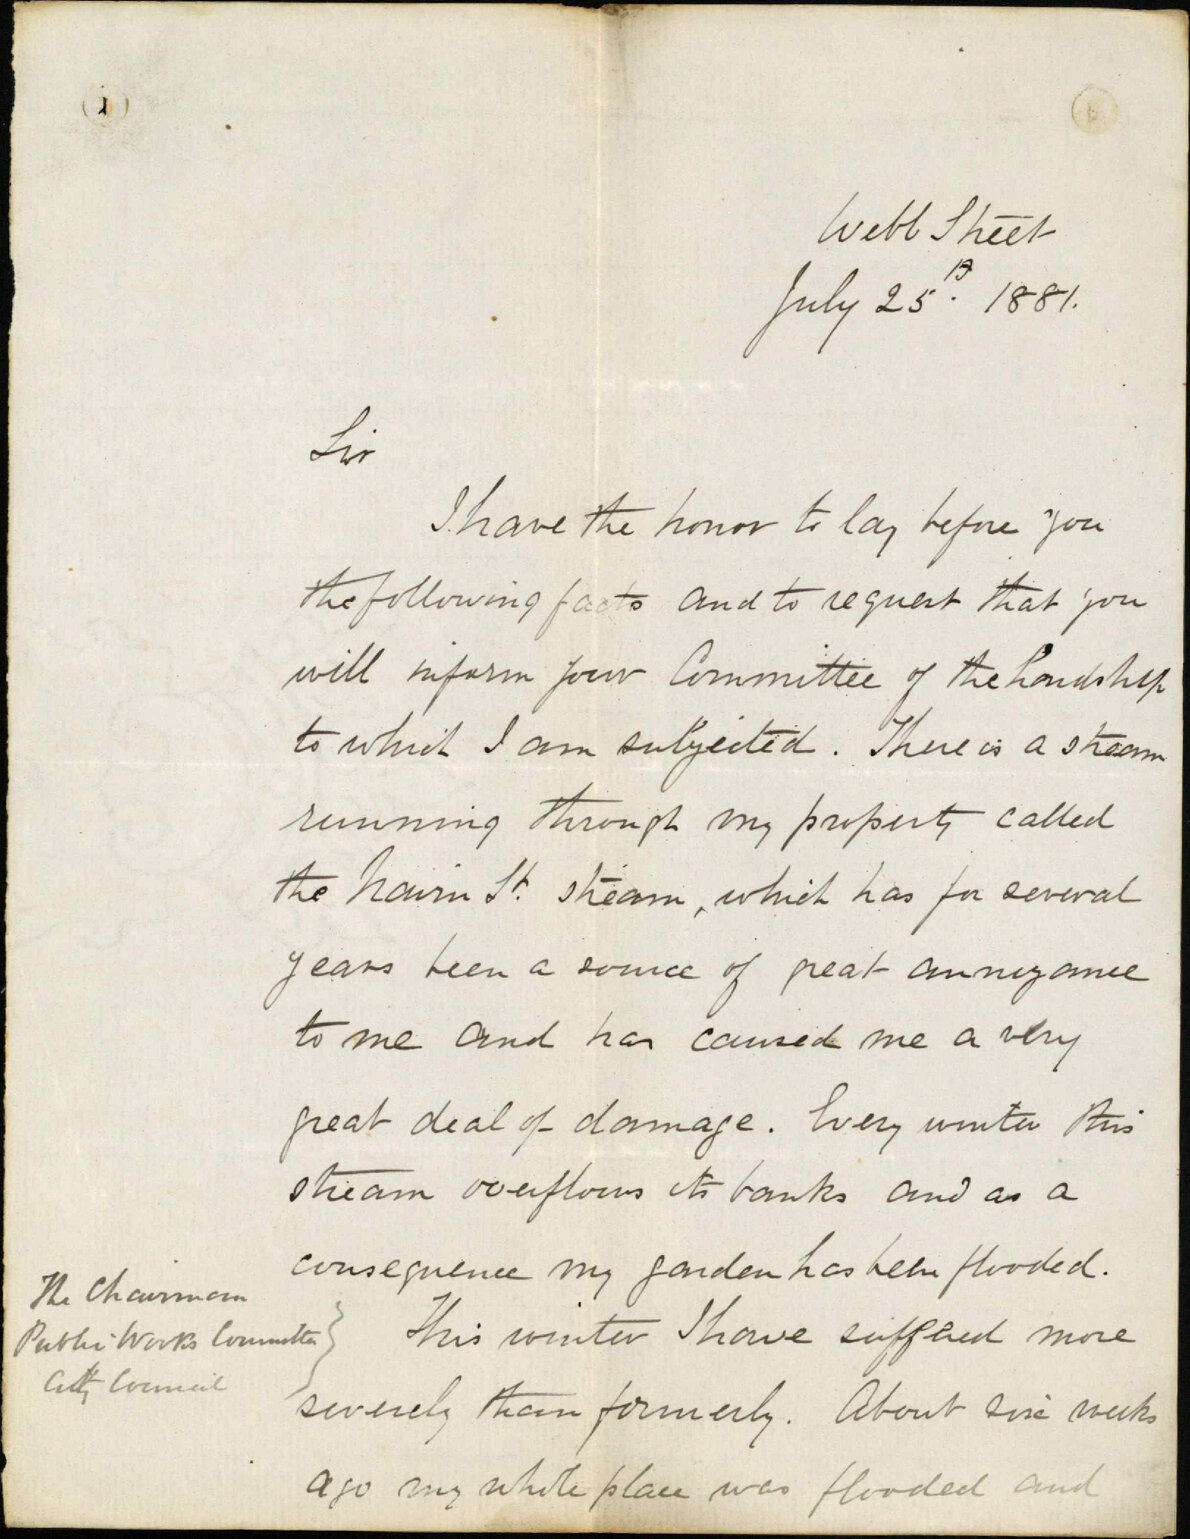 (1)
Webb Street
July 25th. 1881.
Sir
I have the honor to lay before you
the following facts and to request that you
will inform your Committee of the hardship
to which I am subjected. There is a stream
running through my property called
the Nairn St. stream, which has for several
years been a source of great annoyance
to me and has caused me a very
great deal of damage. Every winter this
stream overflows its banks and as a
consequence my garden has been flooded.
This winter I have suffered more
severely than formerly. About six weeks
ago my whole place was flooded and
The Chairman
Public Works Committee
City Council